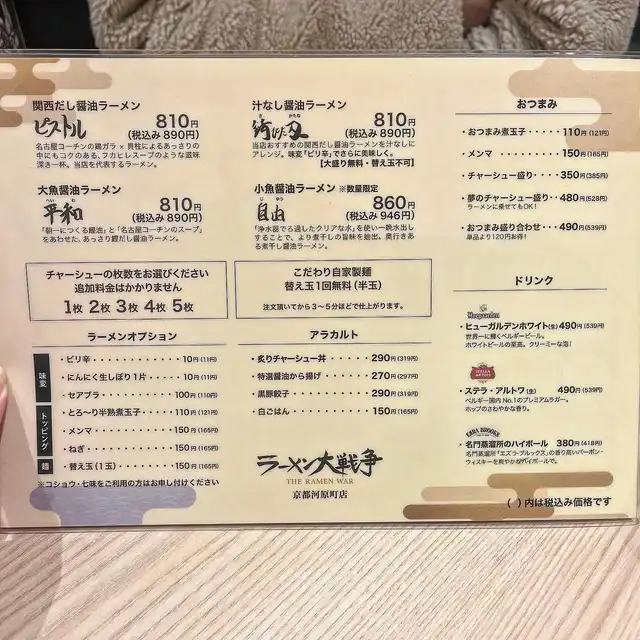 関西だし醤油ラーメン
ピストル
810円
(税込み890円)
名古屋コーチンの鶏ガラ × 貝柱によるあっさりの
中にもコクのある、フカヒレスープのような滋味
深さ。当店を代表するラーメン。
汁なし醤油ラーメン
810円
(税込み890円)
当店おすすめの関西だし醤油ラーメンを汁なしに
アレンジ。味変「ピリ辛」でさらに美味しく。
【大盛り無料・替え玉不可】
大魚醤油ラーメン
へいわ
平和
810円
(税込み890円)
「朝一につくる鰹油」と「名古屋コーチンのスープ」
をあわせた、あっさり鰹だし醤油ラーメン。
小魚醤油ラーメン ※数量限定
じゆう
自由
860円
(税込み946円)
「浄水器でろ過したクリアな水」を使い一晩水出し
することで、より煮干しの旨味を抽出。奥行きあ
る煮干し醤油ラーメン。
チャーシューの枚数をお選びください
追加料金はかかりません
1枚 2枚 3枚 4枚 5枚
こだわり自家製麺
替え玉1回無料(半玉)
注文頂いてから3～5分ほどで仕上がります。
ラーメンオプション
味変
・ピリ辛・・・・・・・・・・・10円(11円)
・にんにく生しぼり1片・・・・10円(11円)
・セアブラ・・・・・・・・・100円(110円)
トッピング
・とろ～り半熟煮玉子・・・・110円(121円)
・メンマ・・・・・・・・・・150円(165円)
・ねぎ・・・・・・・・・・・150円(165円)
麺
・替え玉(1玉)・・・・・・・150円(165円)
※コショウ・七味をご利用の方はお申し付けください
アラカルト
・炙りチャーシュー丼・・・・290円(319円)
・特選醤油から揚げ・・・・・270円(297円)
・黒豚餃子・・・・・・・・・290円(319円)
・白ごはん・・・・・・・・・150円(165円)
ラーメン大戦争
THE RAMEN WAR
京都河原町店
おつまみ
・おつまみ煮玉子・・・・・110円(121円)
・メンマ・・・・・・・・・150円(165円)
・チャーシュー盛り・・・・350円(385円)
・夢のチャーシュー盛り・・480円(528円)
ラーメンに乗せてもOK!
・おつまみ盛り合わせ・・・490円(539円)
単品より120円お得!
ドリンク
Hoegaarden
・ヒューガルデンホワイト(生)490円(539円)
世界一に輝くベルギービール。
ホワイトビールの至高。クリーミーな泡!
STELLA ARTOIS
・ステラ・アルトワ(生) 490円(539円)
ベルギー国内No.1のプレミアムラガー。
ホップのさわやかな香り。
EZRA BROOKS
・名門蒸溜所のハイボール 380円(418円)
名門蒸溜所「エズラ・ブルックス」の香り高いバーボン・
ウィスキーを爽やかなハイボールで。
( )内は税込み価格です